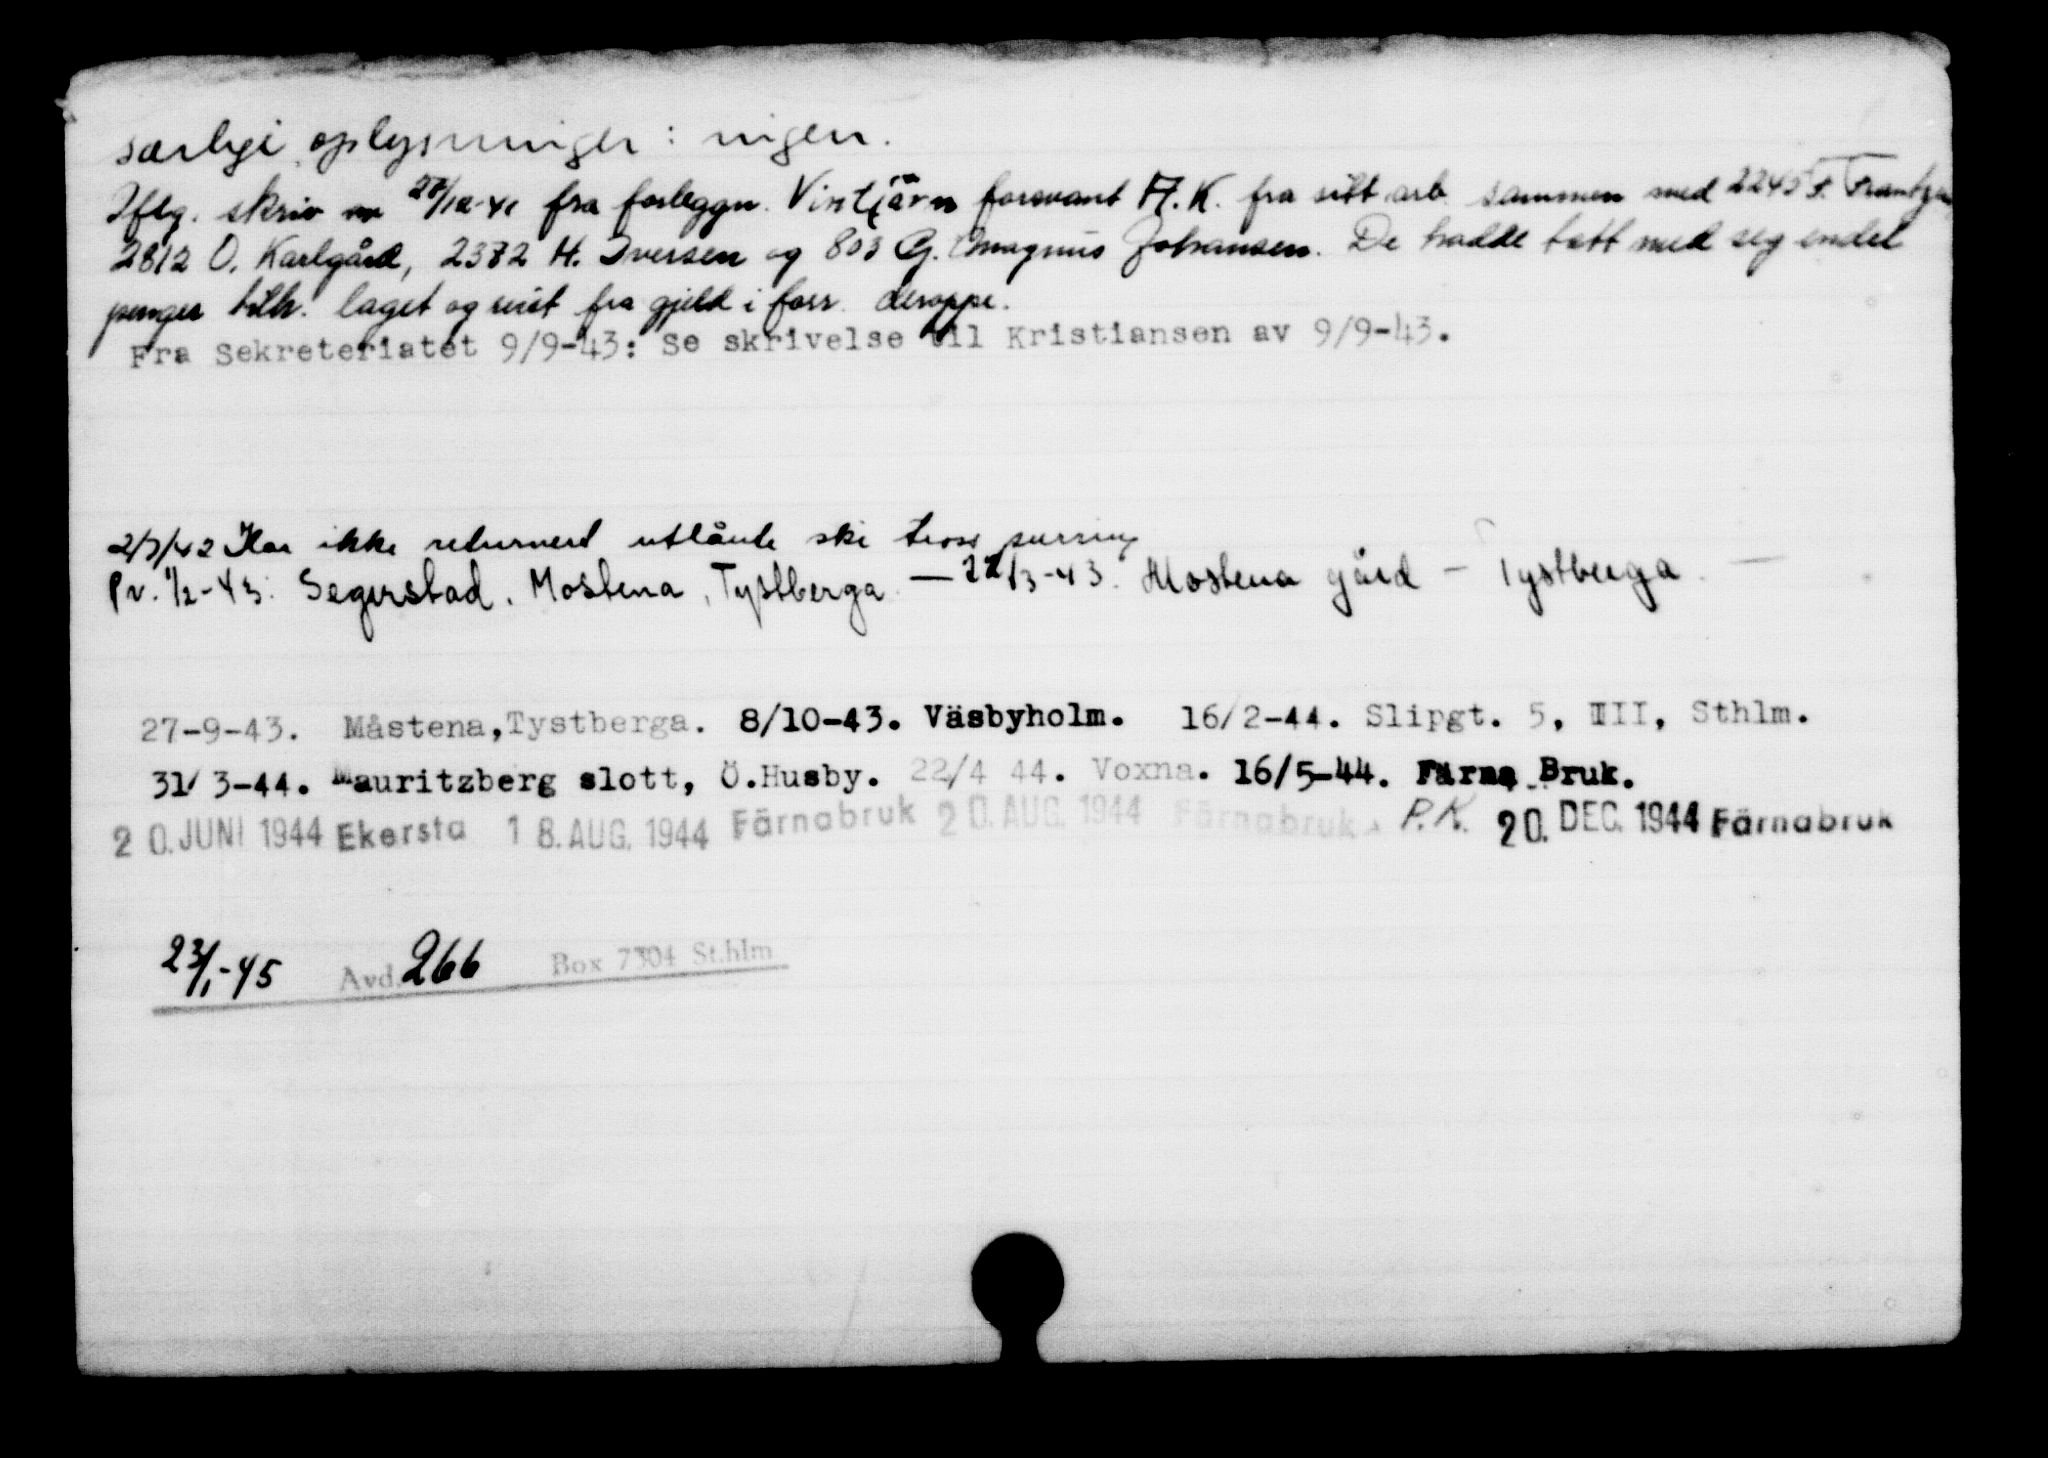 særlige oplysninger: ingen.
Iflg. skriv av 27/12-41 fra forleggn. Vintjärn forsvant A.K. fra sitt arb. sammen med 2245 F. Frantzen
2812 O. Karlgård, 2372 H. Iversen og 803 G. Magnus Johansen. De hadde tatt med seg endel
penger tilh. laget og reist fra gjeld i forr. deroppe.
Fra Sekreteriatet 9/9-43: Se skrivelse til Kristiansen av 9/9-43.
2/7/42 Har ikke returnert utlånte ski tross purring
Pr. 1/2-43: Segerstad, Mostena, Tystberga. — 22/3-43. Mostena gård - Tystberga. —
27-9-43. Måstena, Tystberga. 8/10-43. Väsbyholm. 16/2-44. Slipgt. 5, III, Sthlm.
31/3-44. Mauritzberg slott, Ö.Husby. 22/4 44. Voxna. 16/5-44. Färna Bruk.
20. JUNI 1944 Ekersta 18. AUG. 1944 Färnabruk 20. AUG. 1944 Färnabruk. P.K. 20. DEC. 1944 Färnabruk
23/1-45 Avd. 266 Box 7304 St.hlm